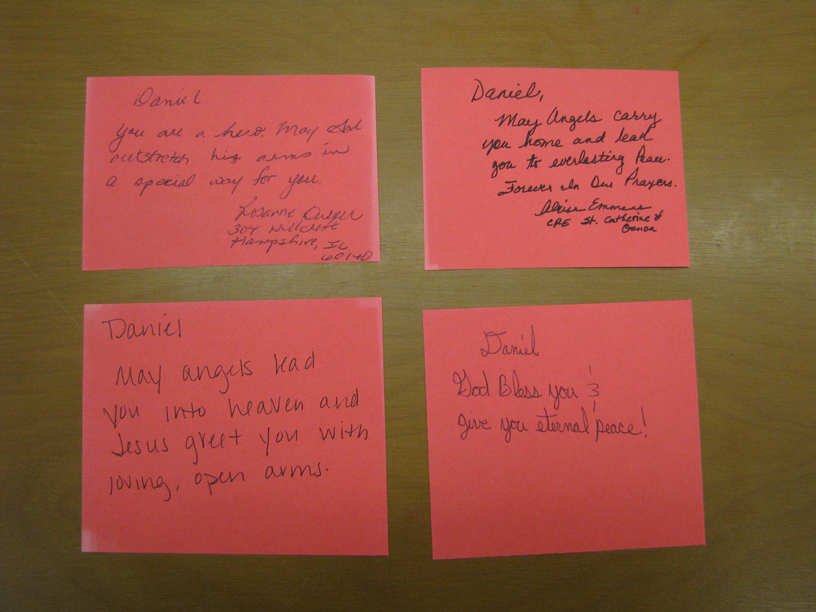 Daniel
You are a hero. May God
outstretch his arms in
a special way for you.
307 Hillcrest
Hampshire, IL
60140
Daniel,
May Angels carry
you home and lead
you to everlasting Peace.
Forever In Our Prayers.
CRE St. Catherine of
Genoa
Daniel
May angels lead
you into heaven and
Jesus greet you with
loving, open arms.
Daniel
God Bless you &
give you eternal peace!